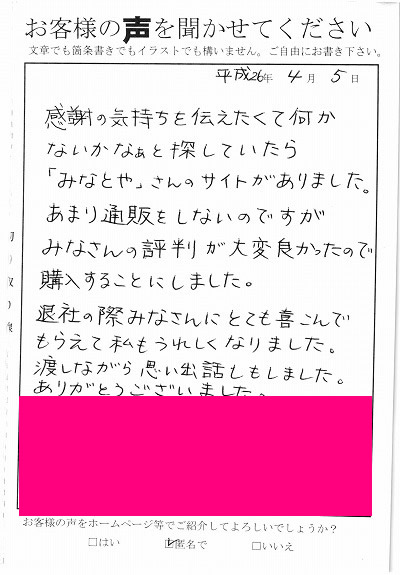 お客様の声を聞かせてください
文章でも箇条書きでもイラストでも構いません。ご自由にお書き下さい。
平成26年 4月 5日
感謝の気持ちを伝えたくて何か
ないかなぁと探していたら
「みなとや」さんのサイトがありました。
あまり通販をしないのですが
みなさんの評判が大変良かったので
購入することにしました。
退社の際みなさんにとても喜こんで
もらえて私もうれしくなりました。
渡しながら思い出話しもしました。
ありがとうございました。
お客様の声をホームページ等でご紹介してよろしいでしょうか?
□はい ☑匿名で □いいえ